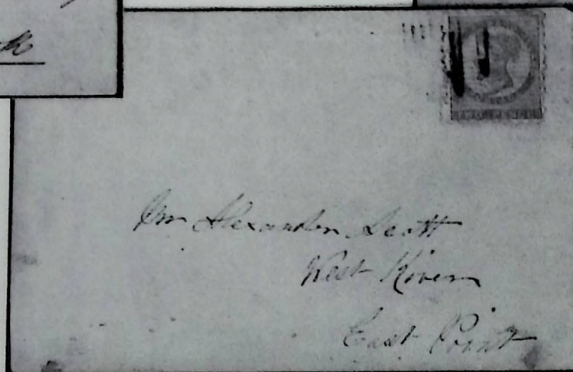 Mr Alexander Scott
West River
East Point